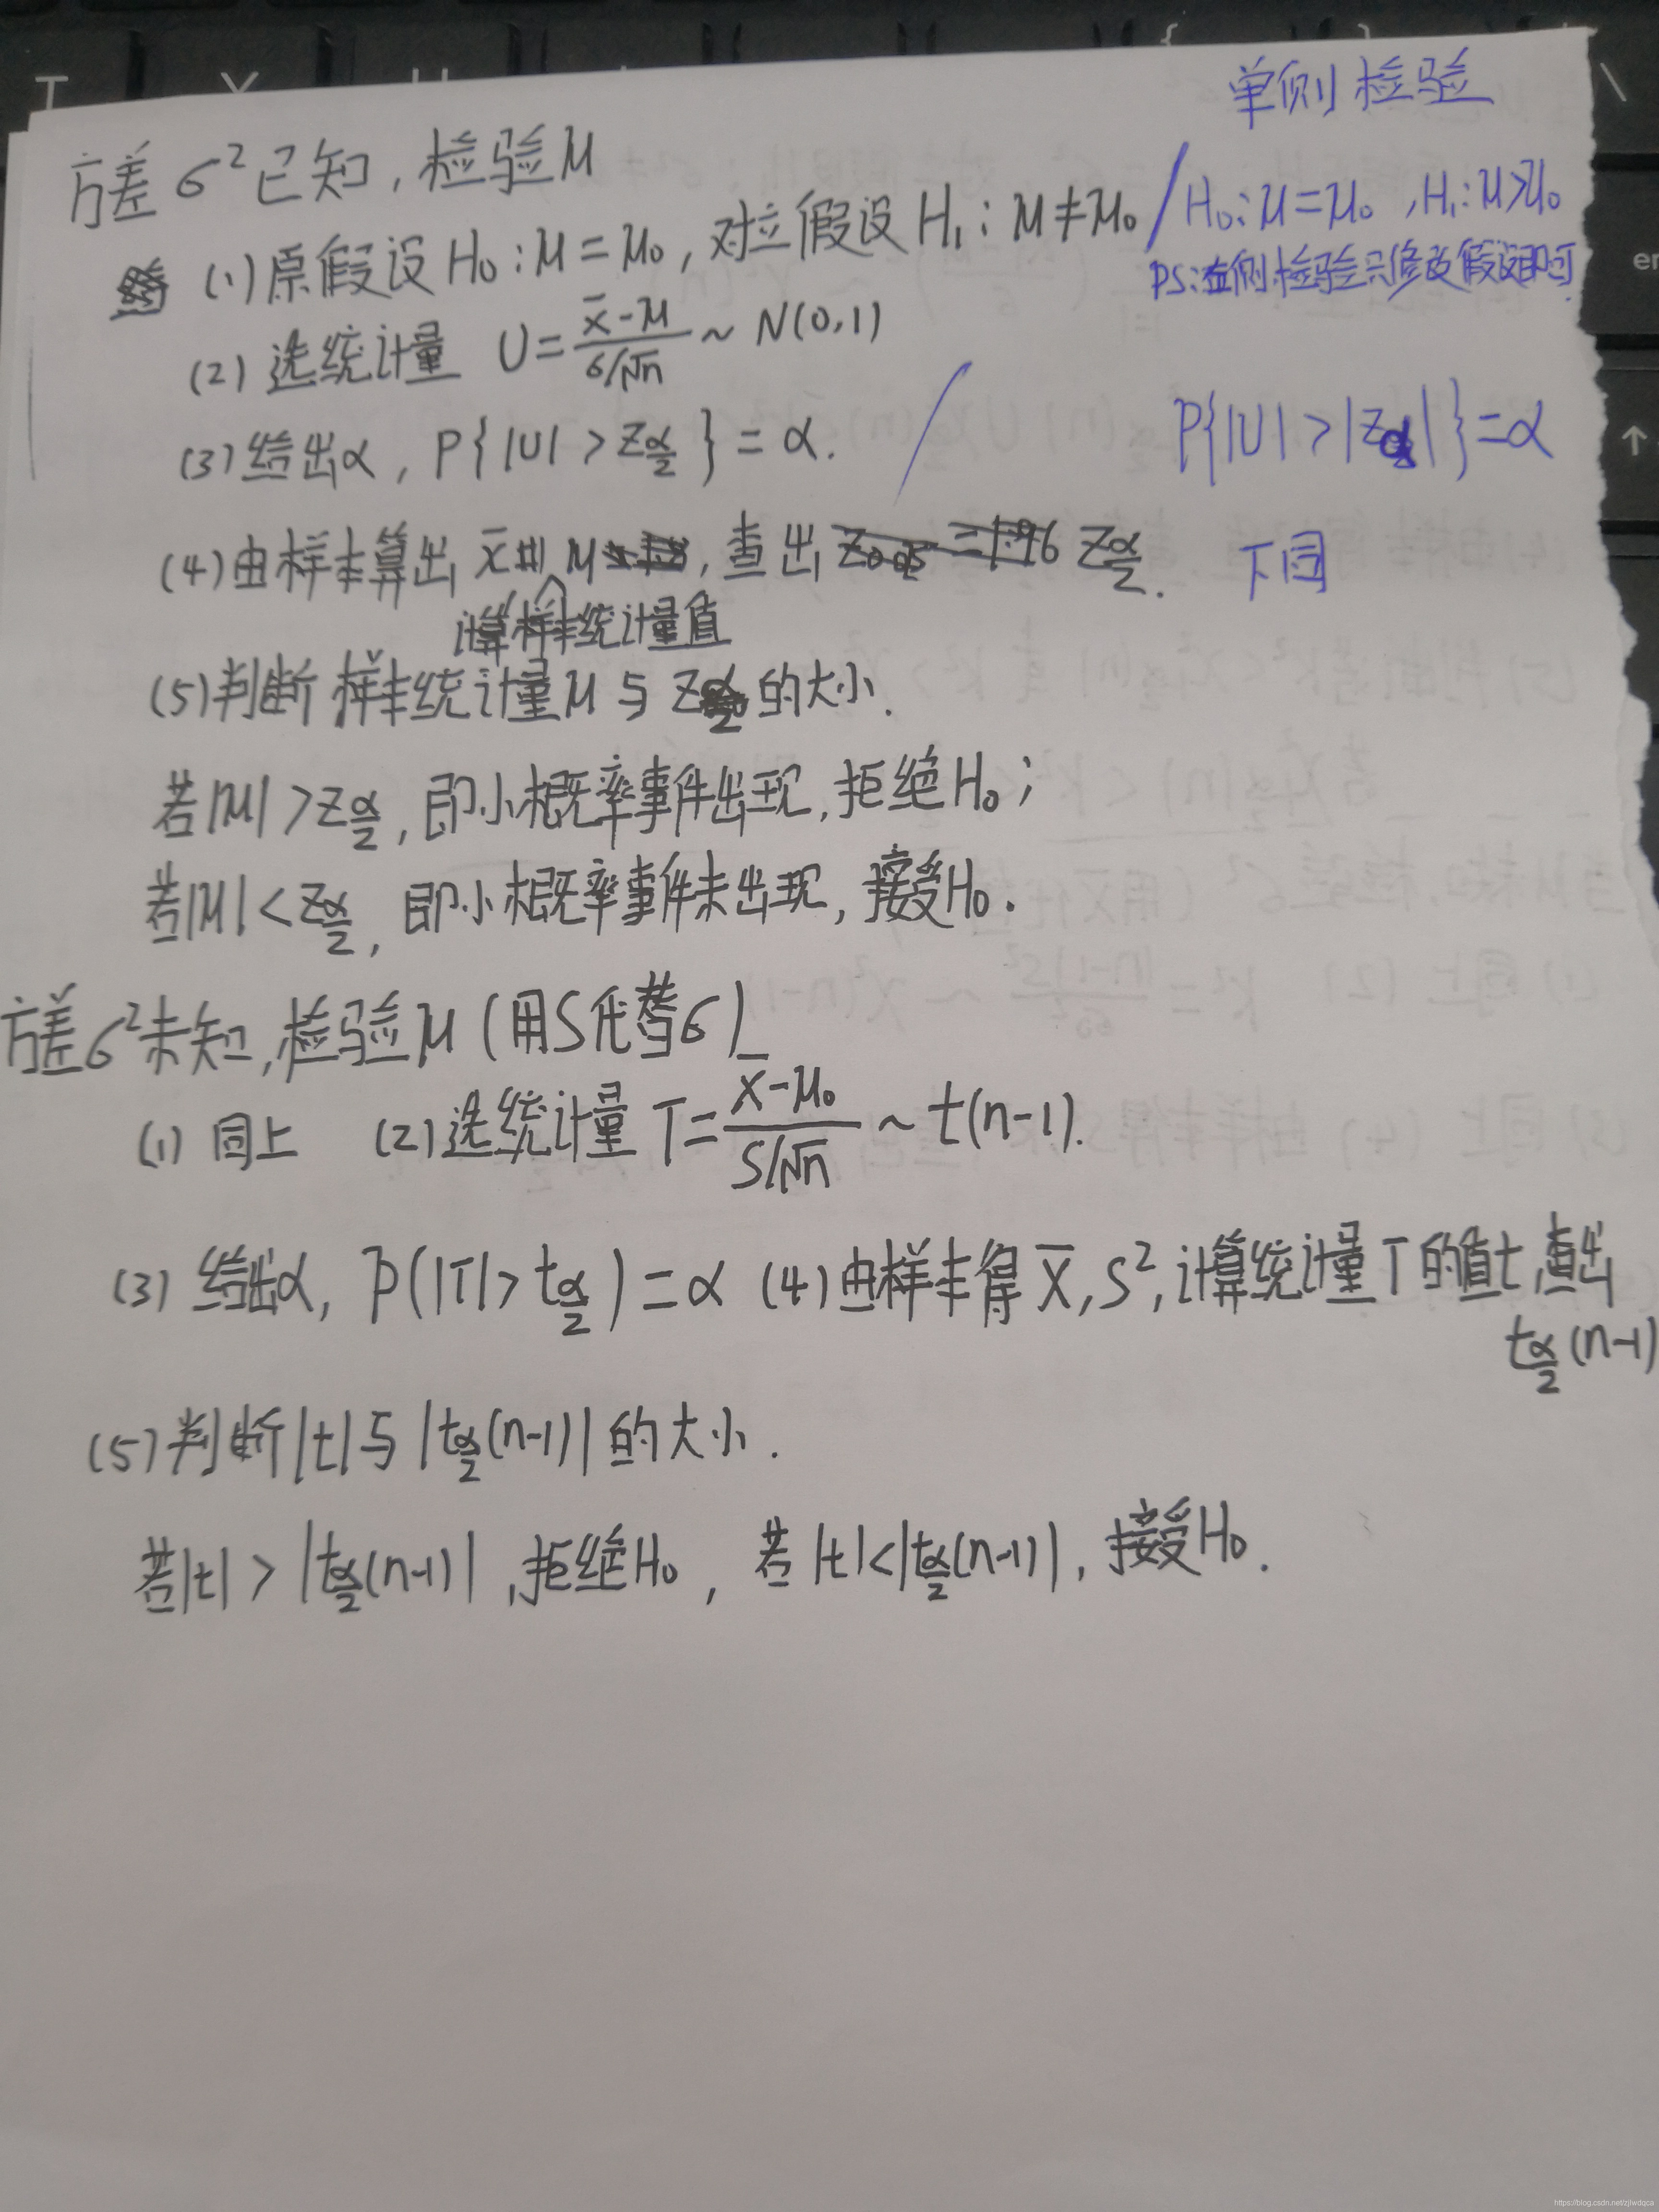 单侧检验
方差σ²已知,检验μ
(1)原假设H₀:μ=μ₀,对立假设H₁:μ≠μ₀ / H₀:μ=μ₀,H₁:μ>μ₀
PS:左侧检验只修改假设即可.
(2)选统计量 U=(x̄-μ)/(σ/√n) ~ N(0,1)
(3)给出α, P{|U|>z_{α/2}}=α. / P{|U|>|z_α|}=α
(4)由样本算出x̄ μ,查出 z_{α/2}. 下同
计算样本统计量值
(5)判断样本统计量μ与z_{α/2}的大小.
若|μ|>z_{α/2},即小概率事件出现,拒绝H₀;
若|μ|<z_{α/2},即小概率事件未出现,接受H₀.
方差σ²未知,检验μ(用S代替σ)
(1)同上 (2)选统计量 T=(x̄-μ₀)/(S/√n) ~ t(n-1).
(3)给出α, P(|T|>t_{α/2})=α (4)由样本得x̄,S²,计算统计量T的值t,查出
t_{α/2}(n-1)
(5)判断|t|与|t_{α/2}(n-1)|的大小.
若|t|>|t_{α/2}(n-1)|,拒绝H₀,若|t|<|t_{α/2}(n-1)|,接受H₀.
https://blog.csdn.net/zjlwdqca